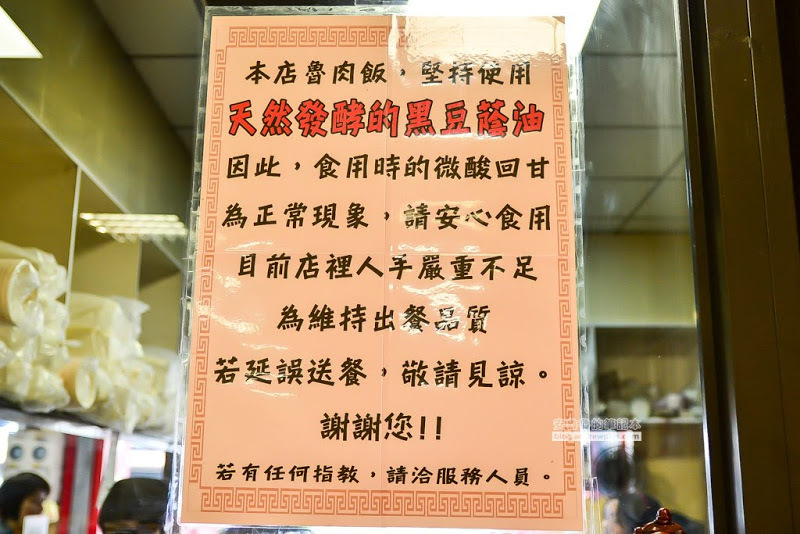 本店魯肉飯，堅持使用
天然發酵的黑豆蔭油
因此，食用時的微酸回甘
為正常現象，請安心食用
目前店裡人手嚴重不足
為維持出餐品質
若延誤送餐，敬請見諒。
謝謝您!!
若有任何指教，請洽服務人員。